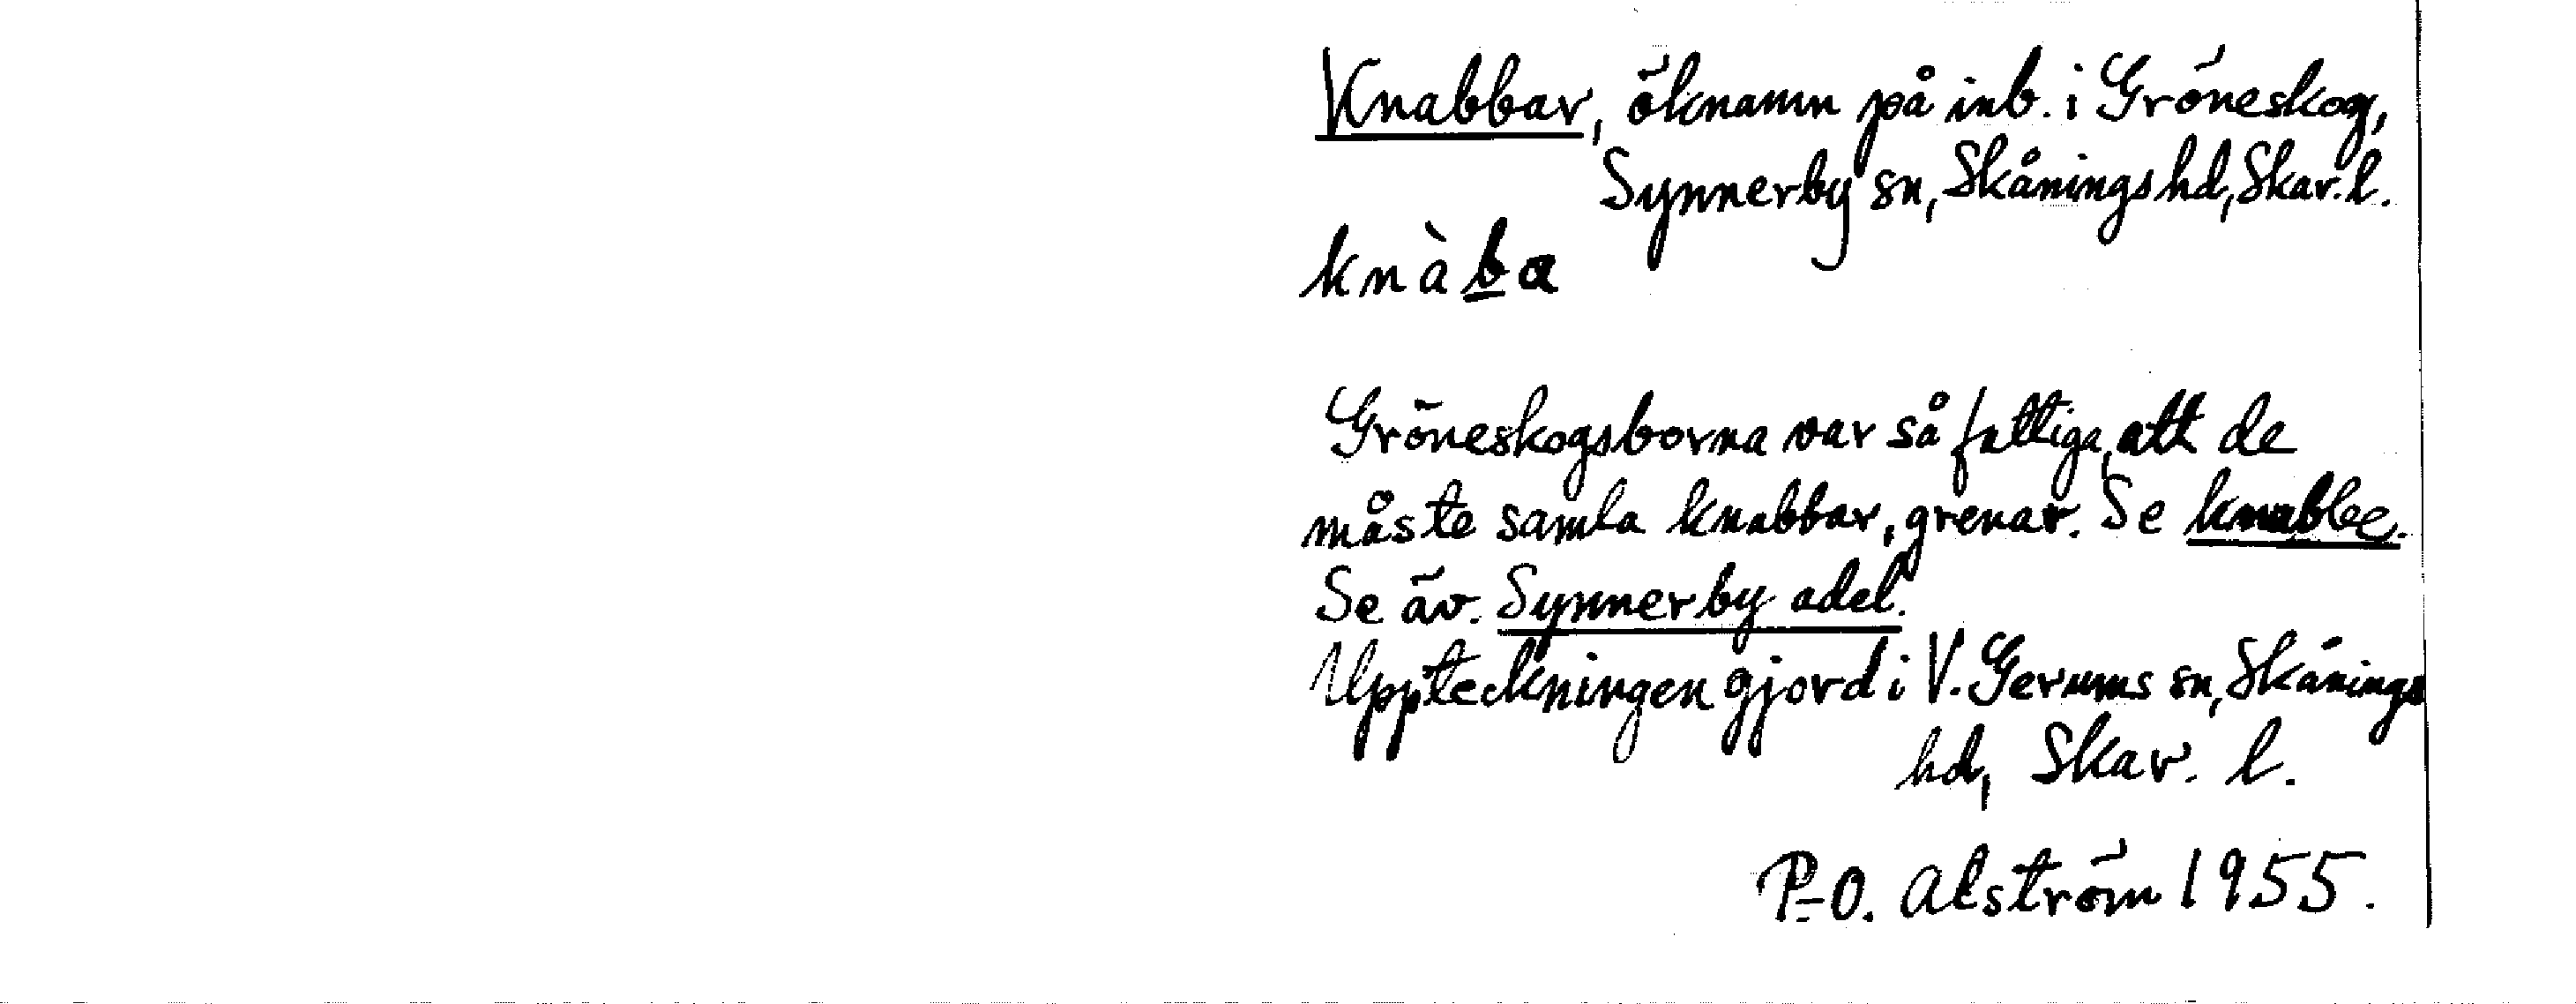 Knabbar, öknamn på inb. i Gröneskog,
Synnerby sn, Skånings hd, Skar. l.
knàba
Gröneskogsborna var så fattiga, att de
måste samla knabbar, grenar. Se knabbe.
Se äv. Synnerby adel.
Uppteckningen gjord i V. Gerums sn, Skånings
hd, Skar. l.
P-O. Alström 1955.